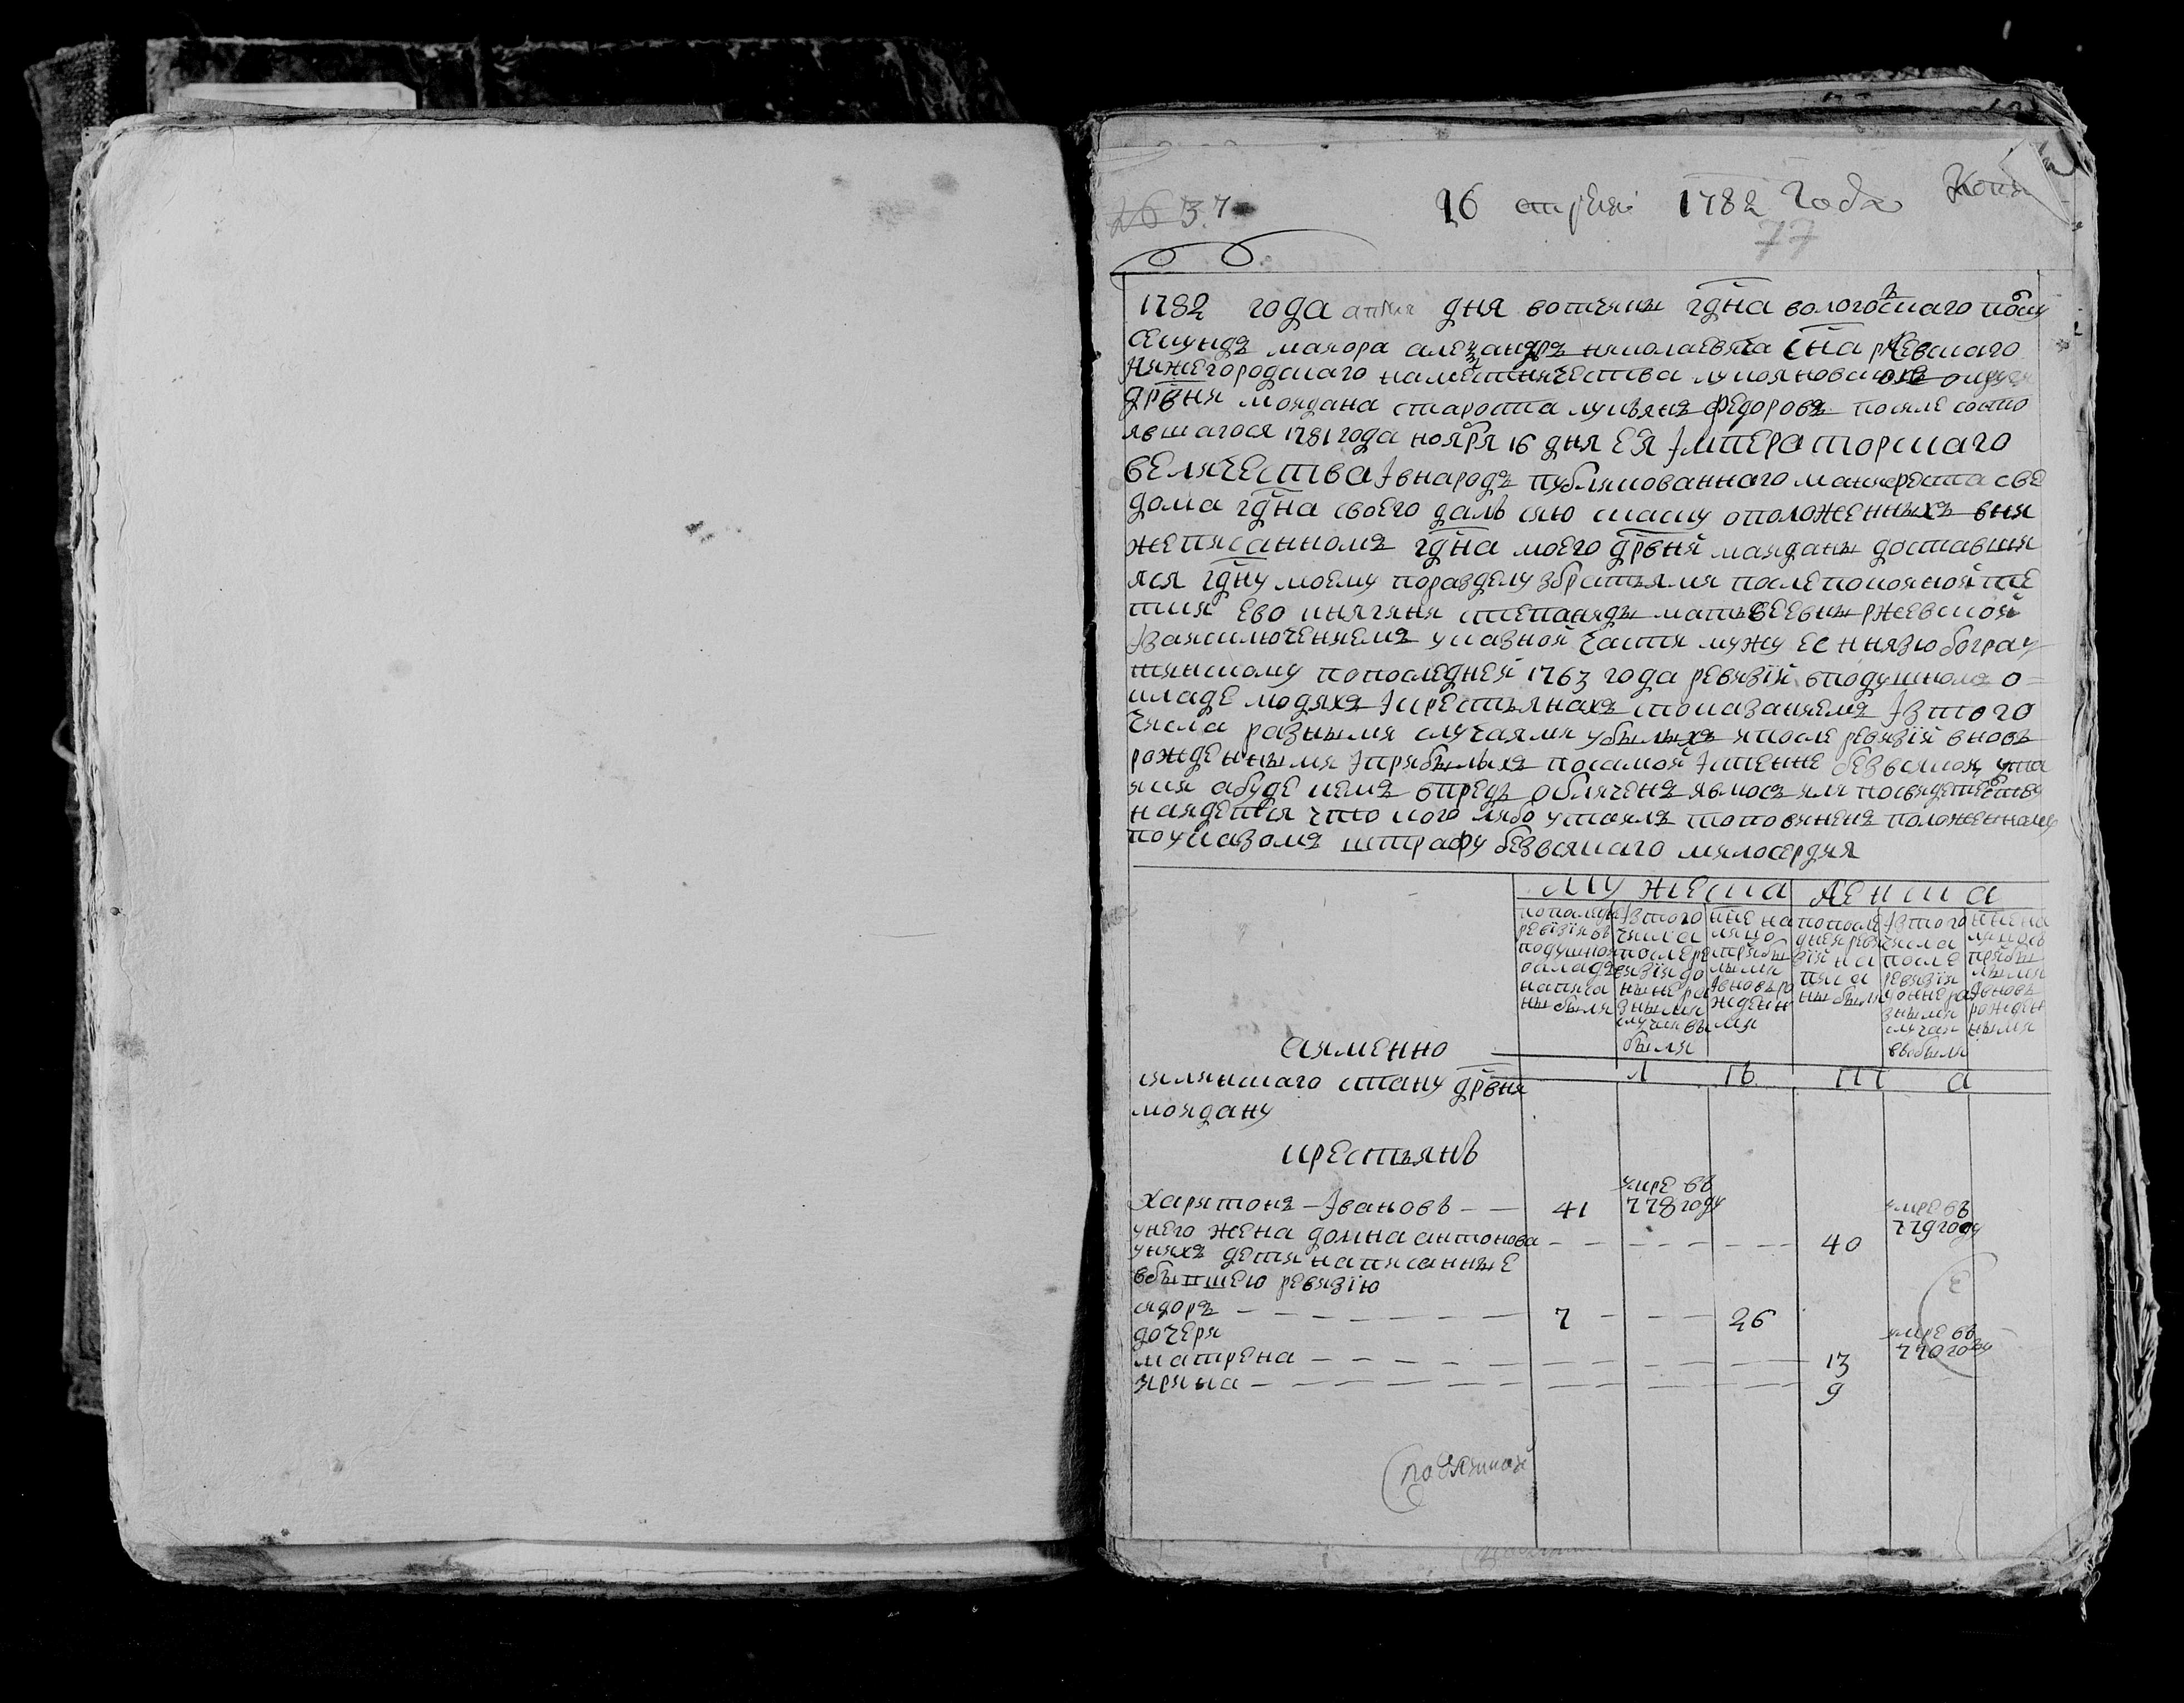 37
26 апреля 1782 Года
77
1782 года дня вотчины гдна вологоцкаго полку
секундъ маиора александръ николаевича сна ржевскаго
нижегородскаго наместничества лукояновской округи
дрвни моидана староста лукьянъ федоровъ после состо
явшагося 1781 года ноября 16 дня ея императорскаго
величества и внародъ публикованнаго манифеста све
дома гдна своего далъ сию скаску ополоѕженныхъ вни
жеписанномъ гдна моего дрвни маиданы доставши
яся гдну моему поразделу збратьями после покойной те
тки ево княгини степаниды матвеевны ржевской
изаисключениемъ указной части мужу ее князю
по последней 1763 года ревизїи вподушномъ о=
кладе людяхъ и крестьянахъ спо казаниемъ изтого
числа разными случаями убылыхъ и после ревизїи вновь
рожденными и прибылыхъ посамой истенне безвсякой ута
ики абуде кемъ впредь обличенъ явлюсь или посвидетельству
наидется что кого либо утаилъ то повиненъ положенному
по указомъ штрафу безвсякаго милосердия
мужеска женска
попоследней ревизїи въ подушном окладе написаны были
изтого числа после ревизїи до ныне разными случаи выбыли
ныне на лицо с прибылыми и вновь рожденными
по последней ревизїи написаны были
изтого числа после ревизїи до ныне разными случаи выбыли
ныне на лицо с прибылыми и вновь рожденными
а имянно
стану дрвня л ѣ т а
моидану
крестьянъ
харитонъ — Ивановъ — — 41 умре въ 778 году
унего жена домна антонова — — 40 умре въ 779 году
унихъ дети написанные
вбывшею ревизїю
сидоръ — — 7 — — 26
дочери
матрена — — 13 умре въ 770 году
ирина — — 9